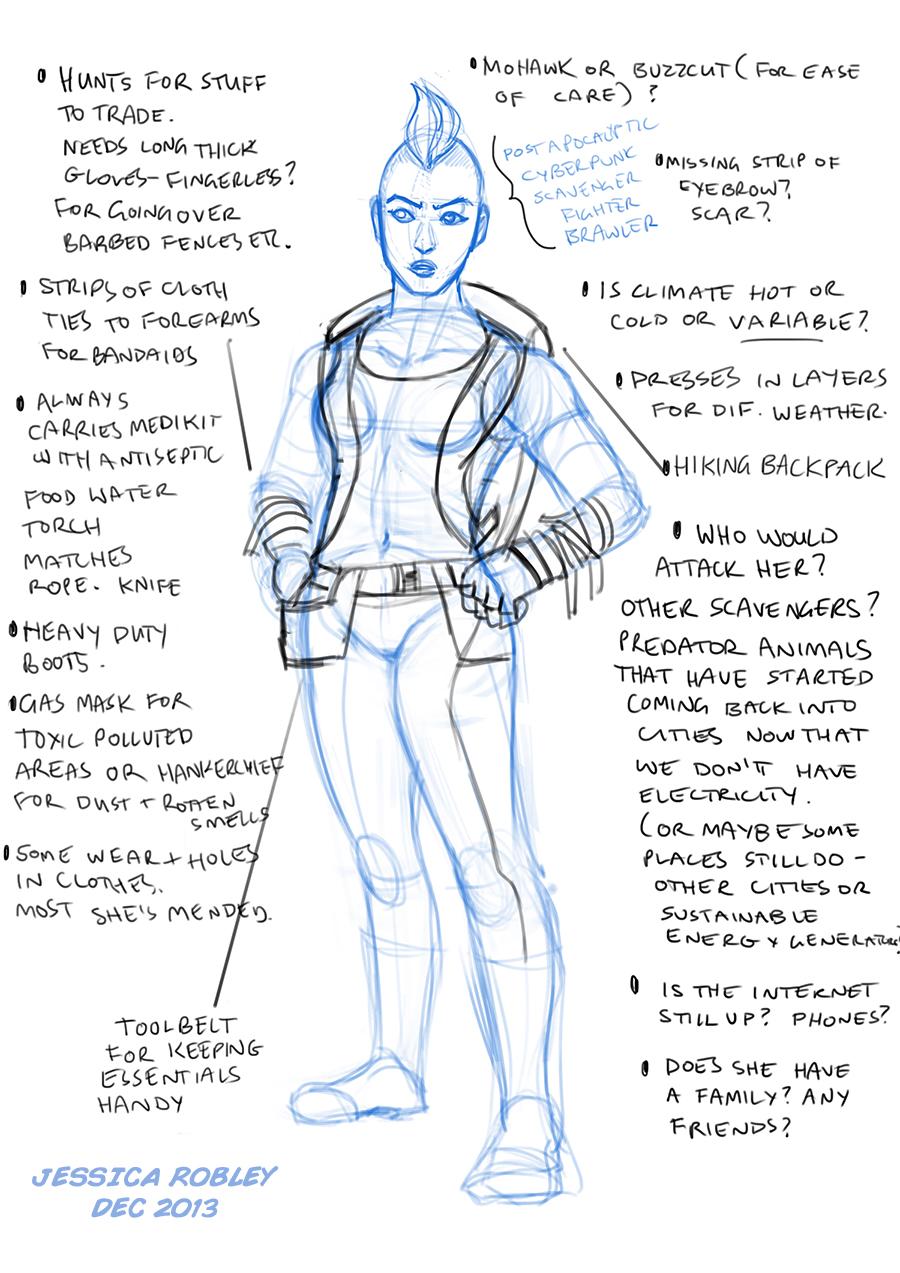 HUNTS FOR STUFF
TO TRADE.
NEEDS LONG THICK
GLOVES- FINGERLESS?
FOR GOING OVER
BARBED FENCES ETC.
STRIPS OF CLOTH
TIES TO FOREARMS
FOR BANDAIDS
ALWAYS
CARRIES MEDIKIT
WITH ANTISEPTIC
FOOD WATER
TORCH
MATCHES
ROPE. KNIFE
HEAVY DUTY
BOOTS.
GAS MASK FOR
TOXIC POLLUTED
AREAS OR HANKERCHIEF
FOR DUST + ROTTEN
SMELLS
SOME WEAR + HOLES
IN CLOTHES.
MOST SHE'S MENDED.
TOOLBELT
FOR KEEPING
ESSENTIALS
HANDY
MOHAWK OR BUZZCUT (FOR EASE
OF CARE) ?
POST APOCALYPTIC
CYBERPUNK
SCAVENGER
FIGHTER
BRAWLER
MISSING STRIP OF
EYEBROW?
SCAR?
IS CLIMATE HOT OR
COLD OR VARIABLE?
DRESSES IN LAYERS
FOR DIF. WEATHER.
HIKING BACKPACK
WHO WOULD
ATTACK HER?
OTHER SCAVENGERS?
PREDATOR ANIMALS
THAT HAVE STARTED
COMING BACK INTO
CITIES NOW THAT
WE DON'T HAVE
ELECTRICITY.
(OR MAYBE SOME
PLACES STILL DO -
OTHER CITIES OR
SUSTAINABLE
ENERGY GENERATORS)
IS THE INTERNET
STILL UP? PHONES?
DOES SHE HAVE
A FAMILY? ANY
FRIENDS?
JESSICA ROBLEY
DEC 2013